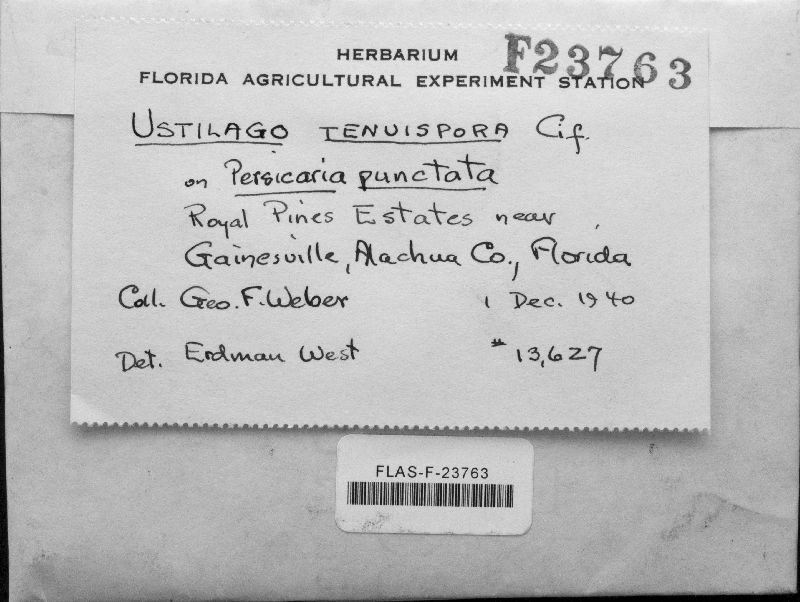 HERBARIUM F23763
FLORIDA AGRICULTURAL EXPERIMENT STATION
USTILAGO TENUISPORA Cif.
on Persicaria punctata
Royal Pines Estates near
Gainesville, Alachua Co., Florida
Coll. Geo. F. Weber 1 Dec. 1940
Det. Erdman West # 13,627
FLAS-F-23763